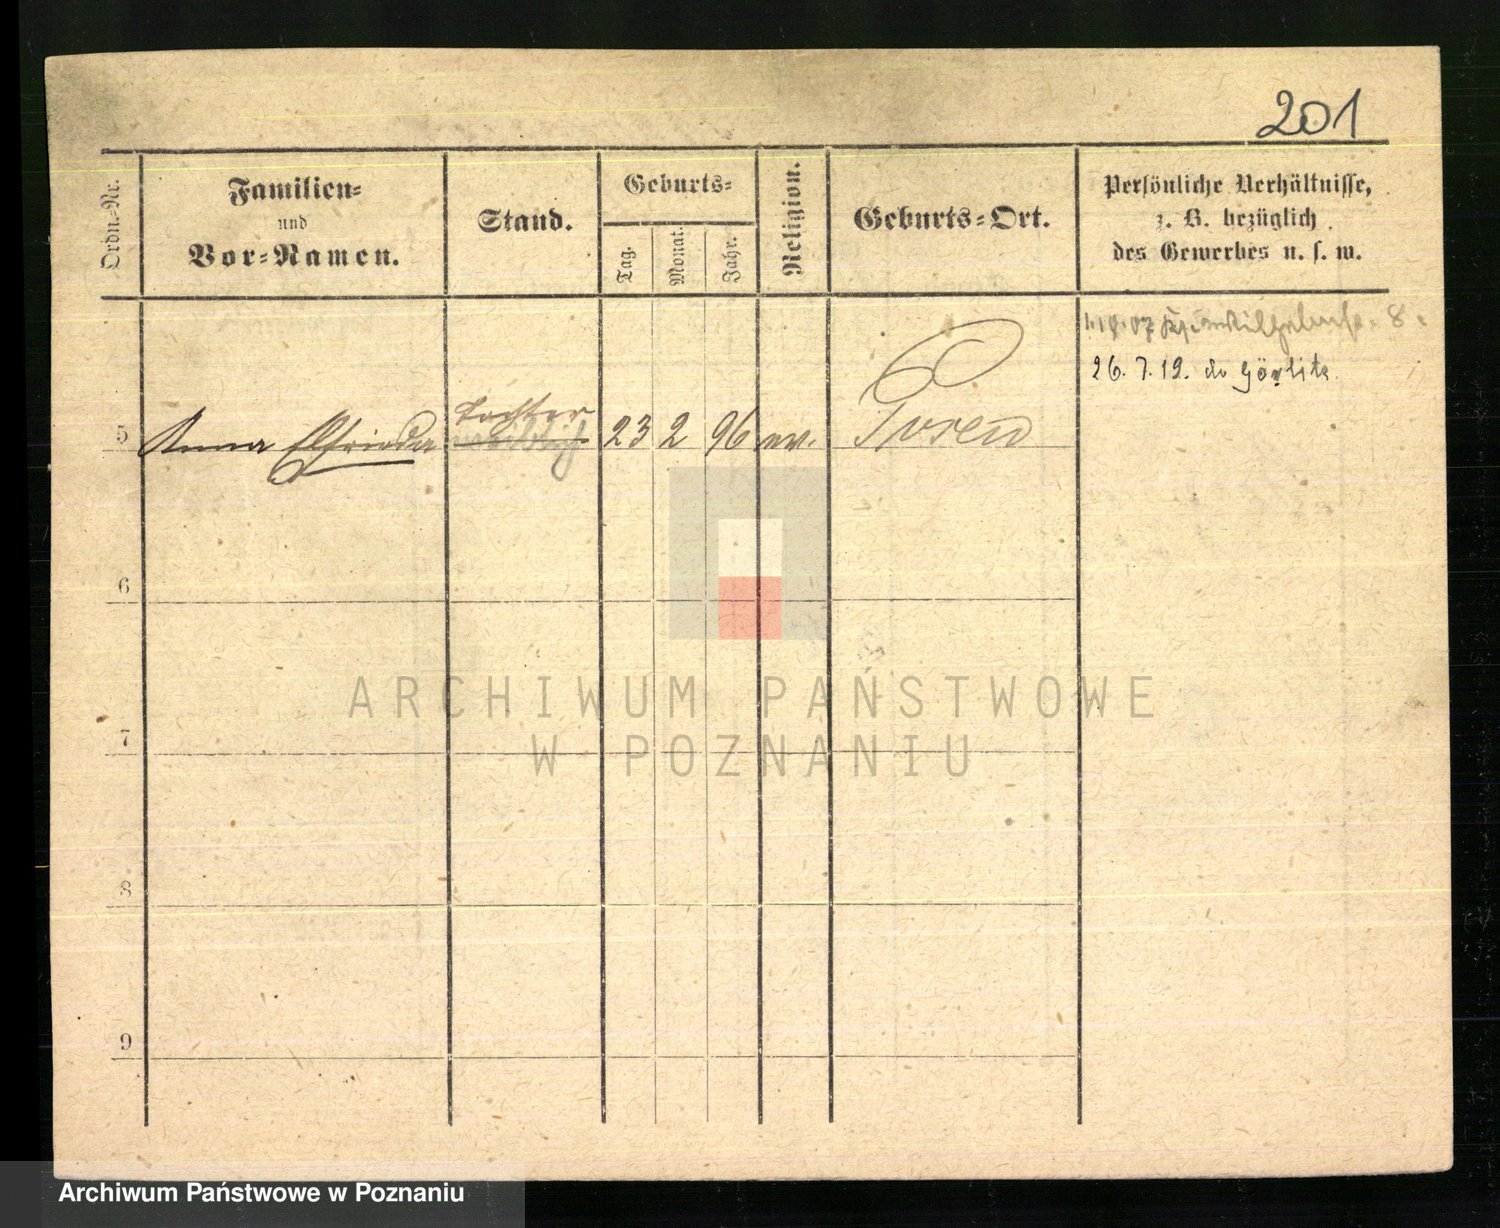 201
Ordn.-Nr.
Familien-
und
Vor-Namen.
Stand.
Geburts-
Tag.
Monat.
Jahr.
Religion.
Geburts-Ort.
Persönliche Verhältnisse,
z. B. bezüglich
des Gewerbes u. s. w.
8.
26. 7. 19. Görlitz
Tochter
5 Anna Elfrieda 23 2 96 ev. Posen
6
7
8
9
ARCHIWUM PAŃSTWOWE
W POZNANIU
Archiwum Państwowe w Poznaniu